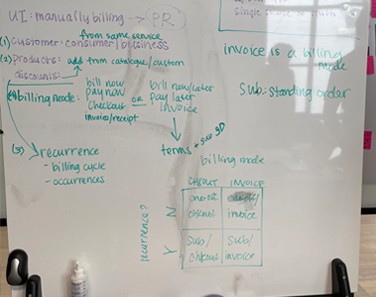 UI: manually billing → PR
from same service
(1) customer: consumer | business
(2) products: add from catalogue/custom
discounts
(4) billing mode: bill now
pay now
checkout
invoice/receipt
OR
bill now/later
pay later
invoice
terms
(5) recurrence
- billing cycle
- occurrences
invoice is a billing
mode
sub: standing order
billing mode
CHKOUT INVOICE
recurrence?
N
one-off
chkout
invoice
Y
sub/
chkout
sub/
invoice